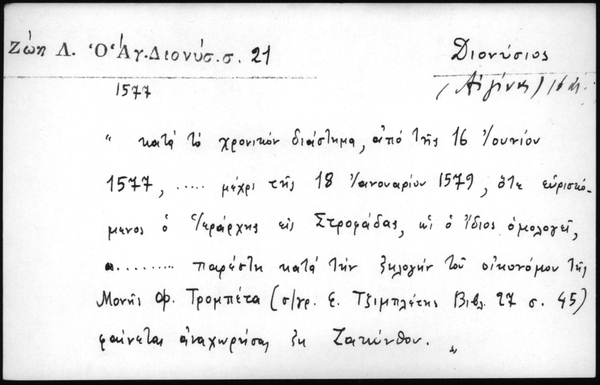 Ζώη Λ. Ὁ Ἅγ. Διονύσ. σ. 21
Διονύσιος
(Αἰγίνης) 16 αἰ.
1577
" κατά τό χρονικόν διάστημα, ἀπό τῆς 16 Ἰουνίου
1577, ..... μέχρι τῆς 18 Ἰανουαρίου 1579, ὅτε εὑρισκό-
μενος ὁ Ἱεράρχης εἰς Στροφάδας, ὡς ὁ ἴδιος ὁμολογεῖ,
......... παρέστη κατά τήν ἐκλογήν τοῦ οἰκονόμου τῆς
Μονῆς Φ. Τρομπέτα (σ/γρ. Ε. Τζιμπλέτης Βιβλ. 27 σ. 45)
φαίνεται ἀναχωρήσας ἐκ Ζακύνθου. "